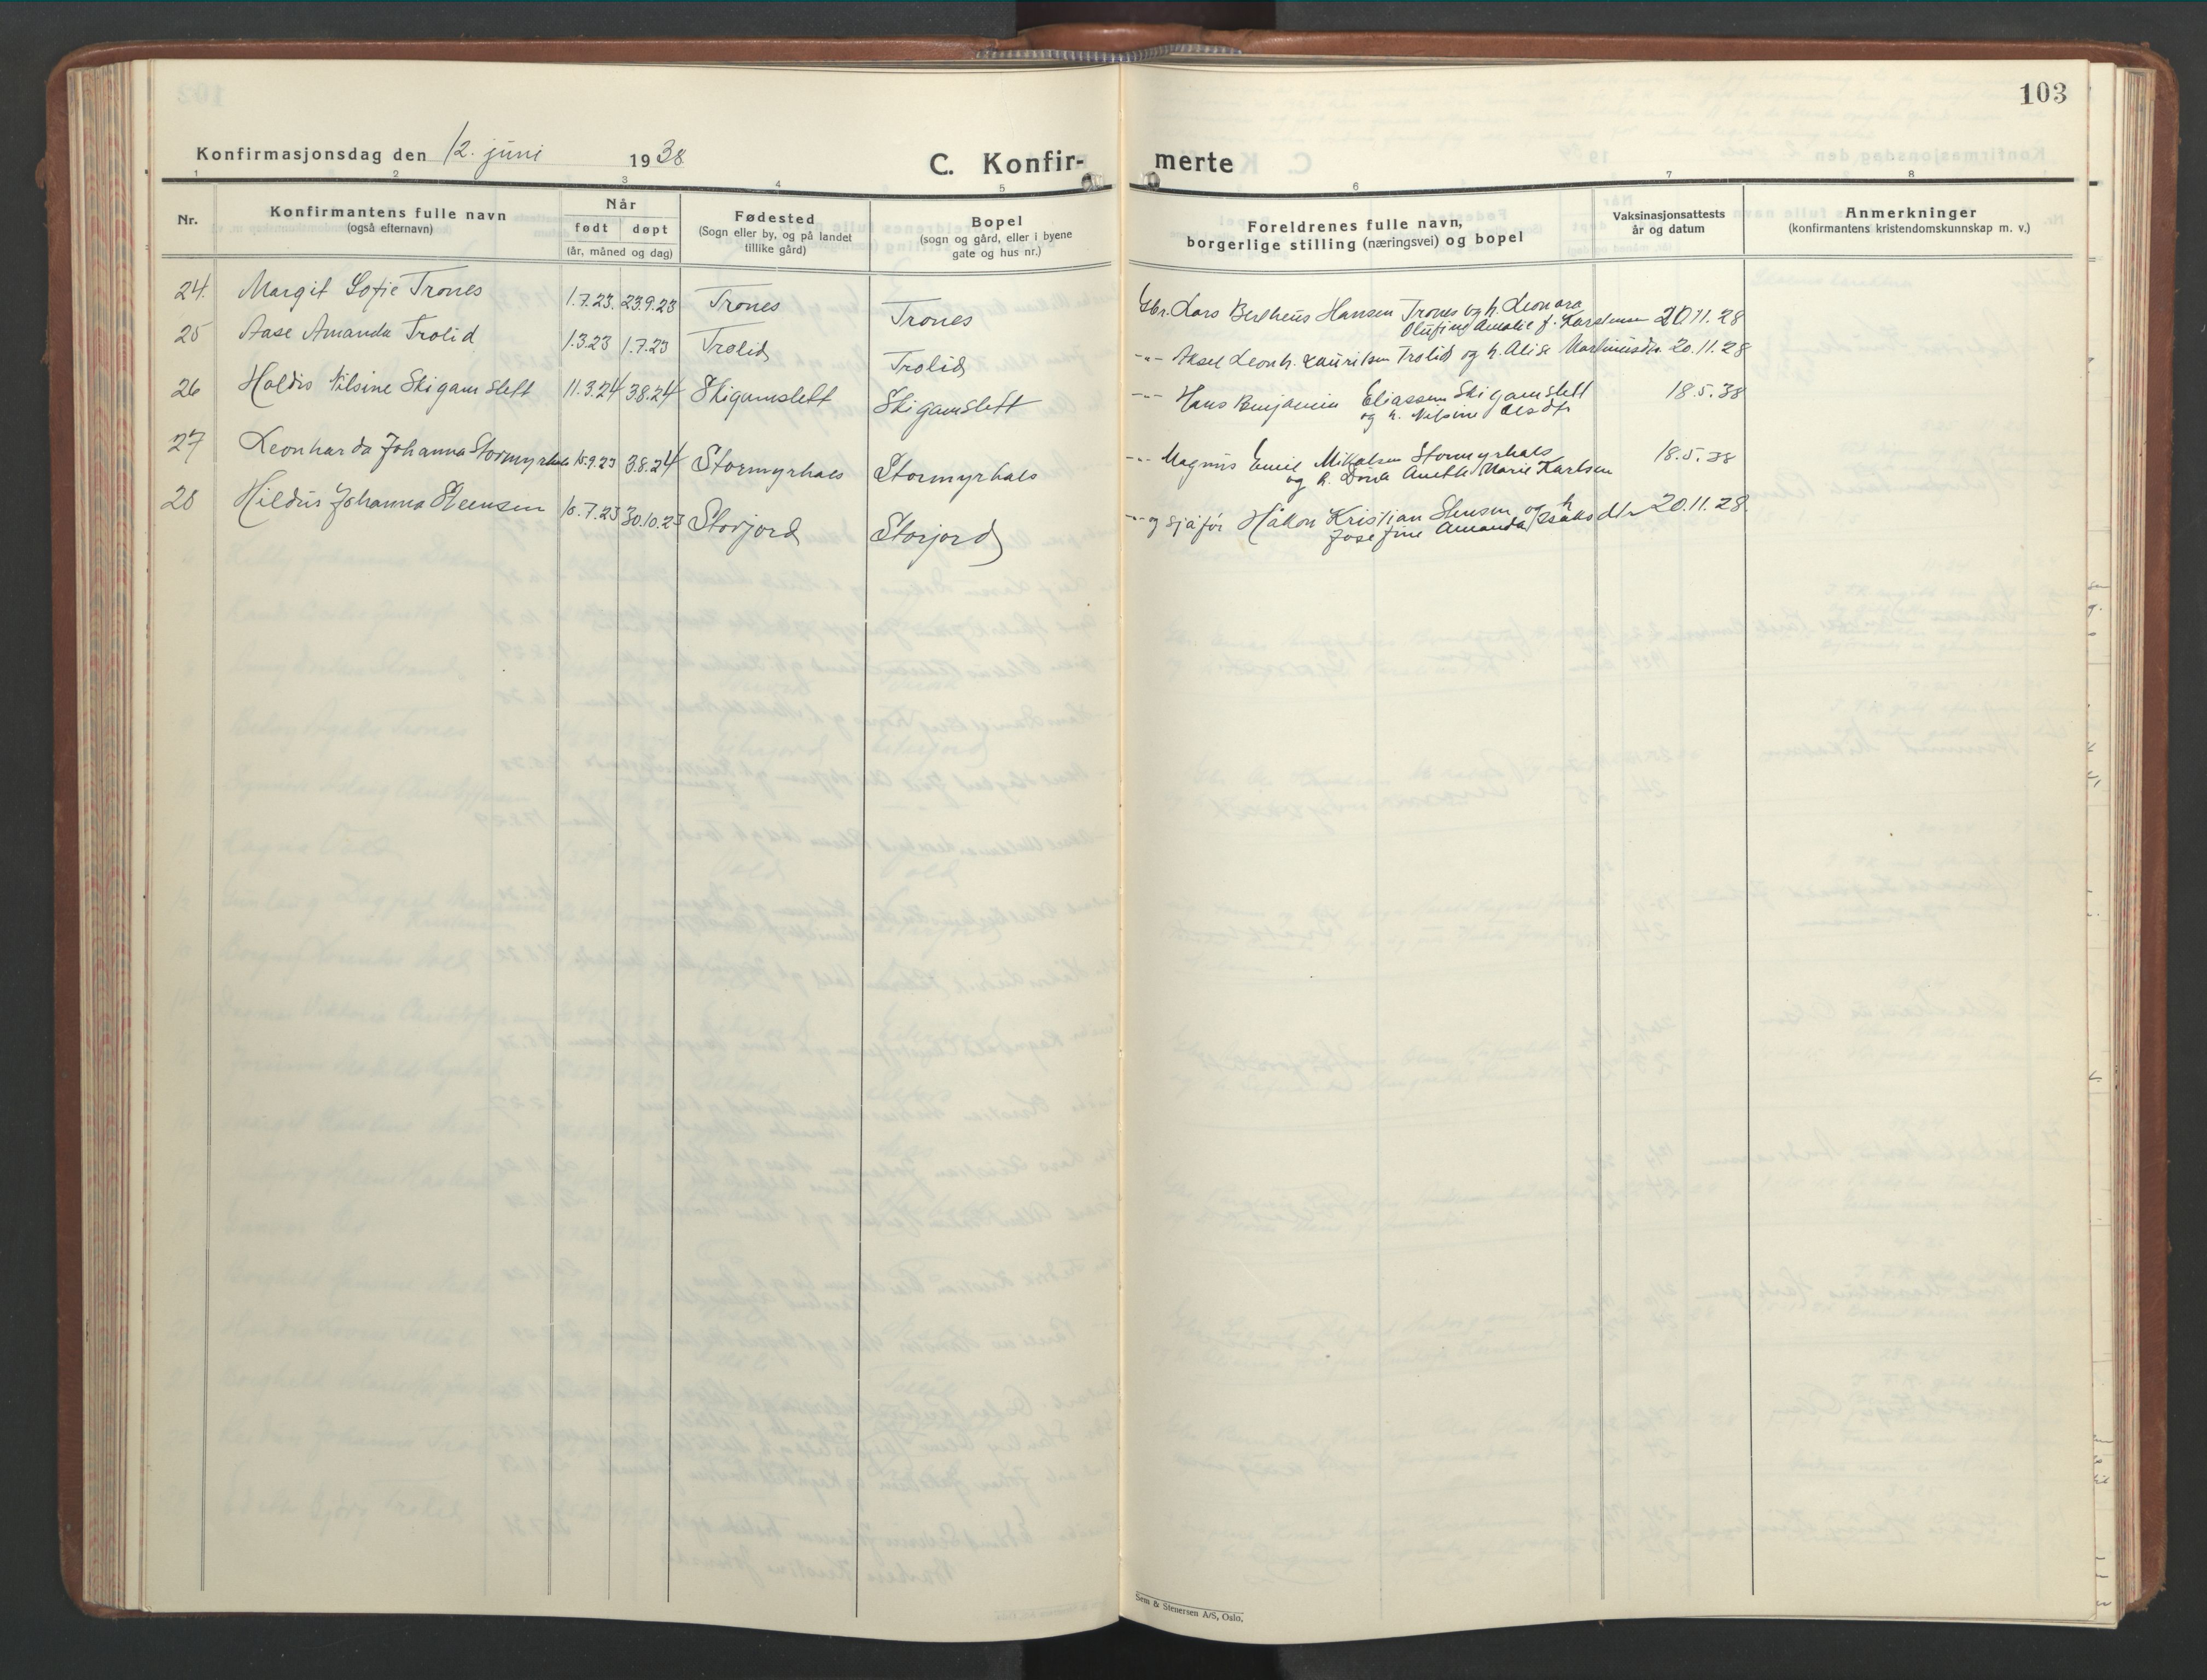 103
Konfirmasjonsdag den 12. juni 1938
C. Konfir- merte
1 2 3 4 5 6 7 8
Nr.
Konfirmantens fulle navn
(også efternavn)
Når
født døpt
(år, måned og dag)
Fødested
(Sogn eller by, og på landet
tillike gård)
Bopel
(sogn og gård, eller i byene
gate og hus nr.)
Foreldrenes fulle navn,
borgerlige stilling (næringsvei) og bopel
Vaksinasjonsattests
år og datum
Anmerkninger
(konfirmantens kristendomskunnskap m. v.)
24. Margit Sofie Trones 1.7.23. 23.9.23 Trones Trones Gbr. Lars Bertheus Hansen Trones og h. Leonora
Olufine Amalie f. Karstensen 20.11.28
25 Aase Amanda Trolid 1.3.23 1.7.23 Trolid Trolid -"- Aksel Leonh. Lauritsen Trolid og h. Alise Martinusdtr. 20.11.28
26 Haldis Nilsine Skigamslett 11.3.24 3.8.24 Skigamslett Skigamslett -"- Hans Benjamin Eliassen Skigamslett
og h. Nilsine Olsdtr 18.5.38
27 Leonharda Johanna Stormyrhals 15.9.23 3.8.24 Stormyrhals Stormyrhals -"- Magnus Emil Mikkalsen Stormyrhals
og h. Dorda Anette Marie Karlsen 18.5.38
28 Hildur Johanna Steensen 15.7.23 30.10.23 Storjord Storjord -"- og sjåfør Håkon Kristian Stensen og h
Josefine Amanda Isaksdtr 20.11.28.
Sem & Stenersen A/S, Oslo.